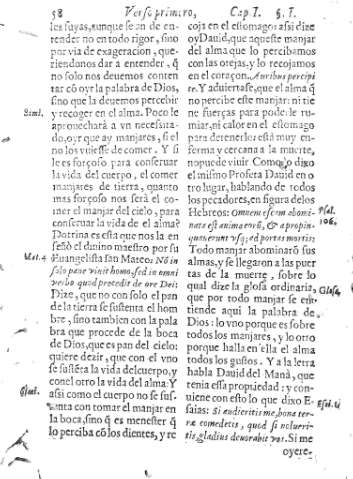 58 Verso primero, Cap. I. §. I.
les suyas, aunque se an de en-
tender no en todo rigor, sino
por via de exageracion, que-
riendonos dar a entender, q̃
no solo nos deuemos conten
tar cõ oyr la palabra de Dios,
sino que la deuemos percebir
Simi. y recoger en el alma. Poco le
aprouechará a vn necesita-
do, oyr que ay manjares, si el
no los vuiesse de comer. Y si
le es forçoso para conseruar
la vida del cuerpo, el comer
manjares de tierra, quanto
mas forçoso nos será el co-
mer el manjar del cielo, para
conseruar la vida de el alma?
Dotrina es esta que nos la en
señò el diuino maestro por su
Mat. 4 Euangelista san Mateo: Nõ in
solo pane viuit homo, sed in omni
verbo quod procedit de ore Dei:
Dize, que no con solo el pan
de la tierra se sustenta el hom
bre, sino tambien con la pala
bra que procede de la boca
de Dios, que es pan del cielo:
quiere dezir, que con el vno
se sustẽta la vida del cuerpo, y
con el otro la vida del alma: Y
assi como el cuerpo no se sus-
tenta con tomar el manjar en
la boca, sino q̃ es menester q̃
lo perciba cõ los dientes, y re
coja en el estomago: assi dize
oy Dauid, que aqueste manjar
del alma que lo percibamos
con las orejas, y lo recojamos
en el coraçon. Auribus percipi
te. Y aduiertase, que el alma q̃
no percibe este manjar: ni tie
ne fuerças para poderle ru-
miar, ni calor en el estomago
para detenerlo: està muy en-
ferma y cercana a la muerte,
no puede viuir Como lo dixo
el mismo Profeta Dauid en o
tro lugar, hablando de todos
los pecadores, en figura de los
Hebreos: Omnem escam abomi Psal.
nata est anima eorũ, & a propin- 106.
quauerunt vsq; ad portas mortis:
Todo manjar abominarõ sus
almas, y se llegaron a las puer
tas de la muerte, sobre lo
qual dize la glosa ordinaria, Glosa,
que por todo manjar se en-
tiende aqui la palabra de
Dios: lo vno porque es sobre
todos los manjares, y lo otro
porque halla en ella el alma
todos los gustos. Y a la letra
habla Dauid del Manà, que
tenia essa propiedad: y con-
uiene con esto lo que dixo E-
saias: Si audieritis me, bona ter-
ræ comedetis, quod si nolueri-
tis, gladius deuorabit vos. Si me
oyere-